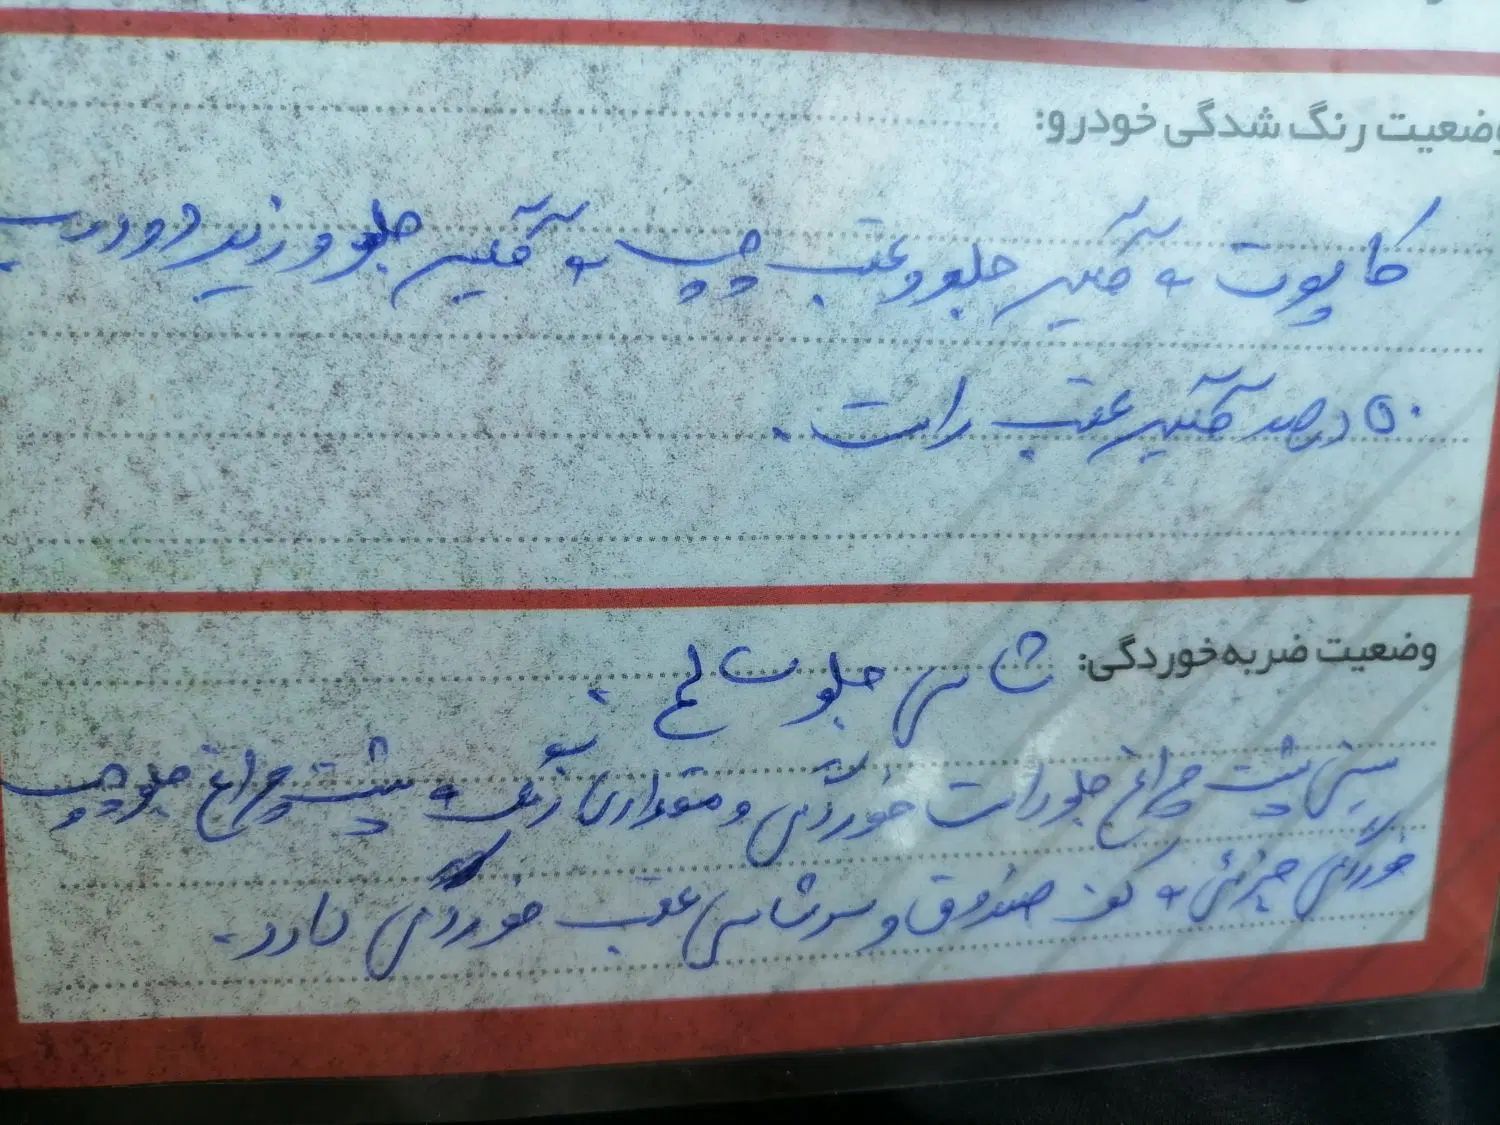 وضعیت رنگ شدگی خودرو:
کاپوت و گلگیر جلو و عقب چپ و گلگیر جلو و زیر دو درب
۵۰ درصد گلگیر عقب راست.
وضعیت ضربه‌خوردگی: شاسی جلو سالم.
سینی پشت چراغ جلو راست خوردگی و مقداری رنگ و پشت چراغ جلو چپ
خوردگی جزئی و کف صندوق و سرشاسی عقب خوردگی دارد.